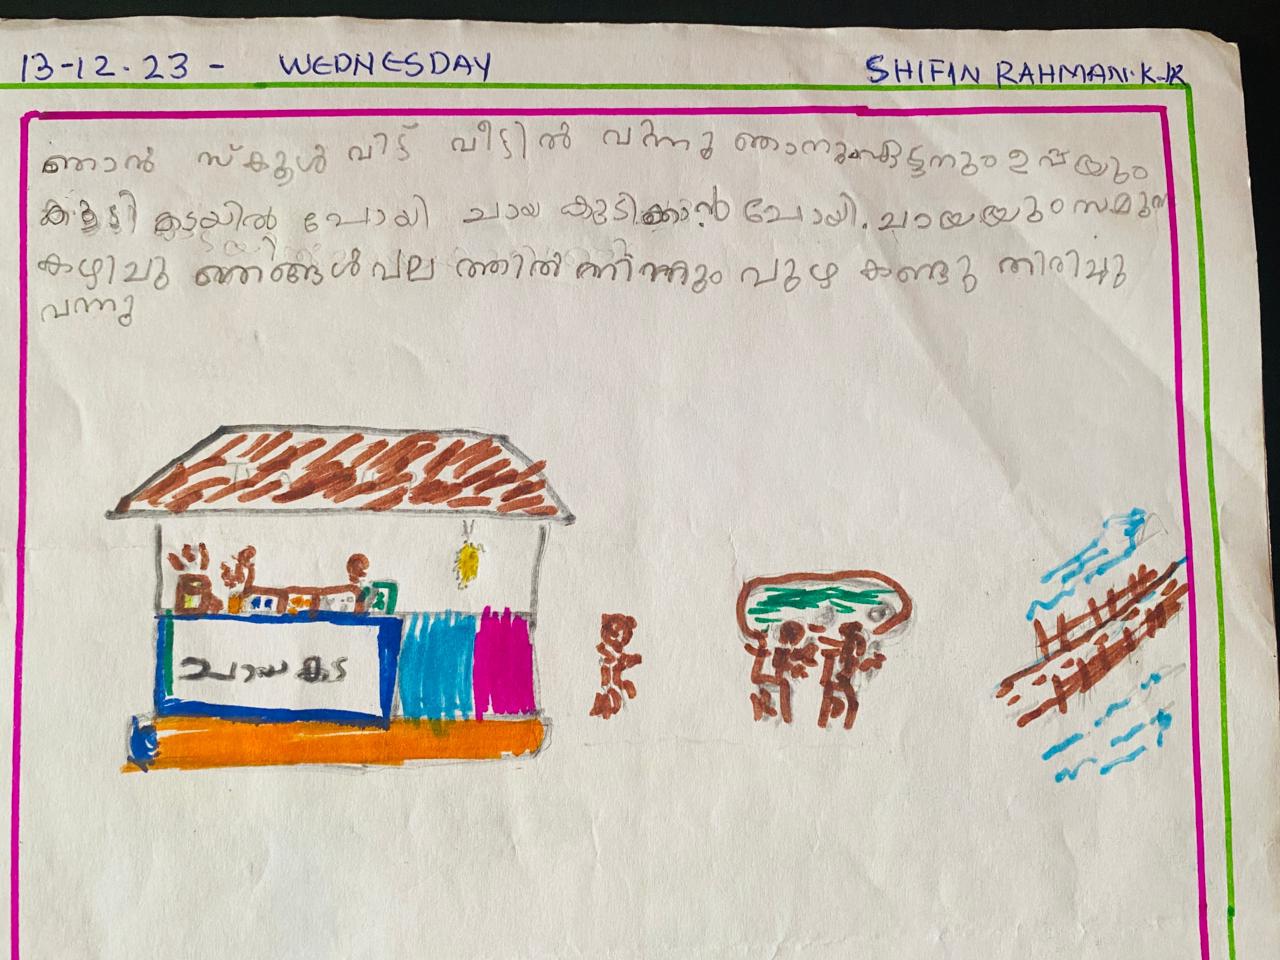 13-12-23 - WEDNESDAY SHIFIN RAHMAN.K.R
ഞാൻ സ്കൂൾ വിട് വീട്ടിൽ വന്നു ഉപ്പയും
കൂട്ടി കടയിൽ പോയി ചായ കുടിക്കാൻ പോയി. ചായയും
കഴിച്ചു ഞങ്ങൾ പല ത്തിൽ നിന്നും പുഴ കണ്ടു തിരിച്ചു
വന്നു
ചായ കട